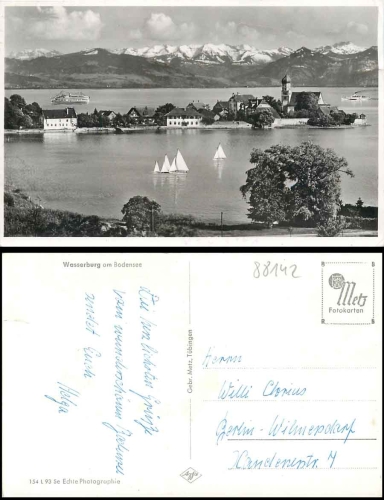 Wasserburg am Bodensee
88142
Metz
Fotokarten
Die herzlichsten Grüße
vom wunderschönen Bodensee
sendet Euch
Helga
Gebr. Metz, Tübingen
Herrn
Willi
Berlin-Wilmersdorf
7
154 L 93 Se Echte Photographie
Agfa